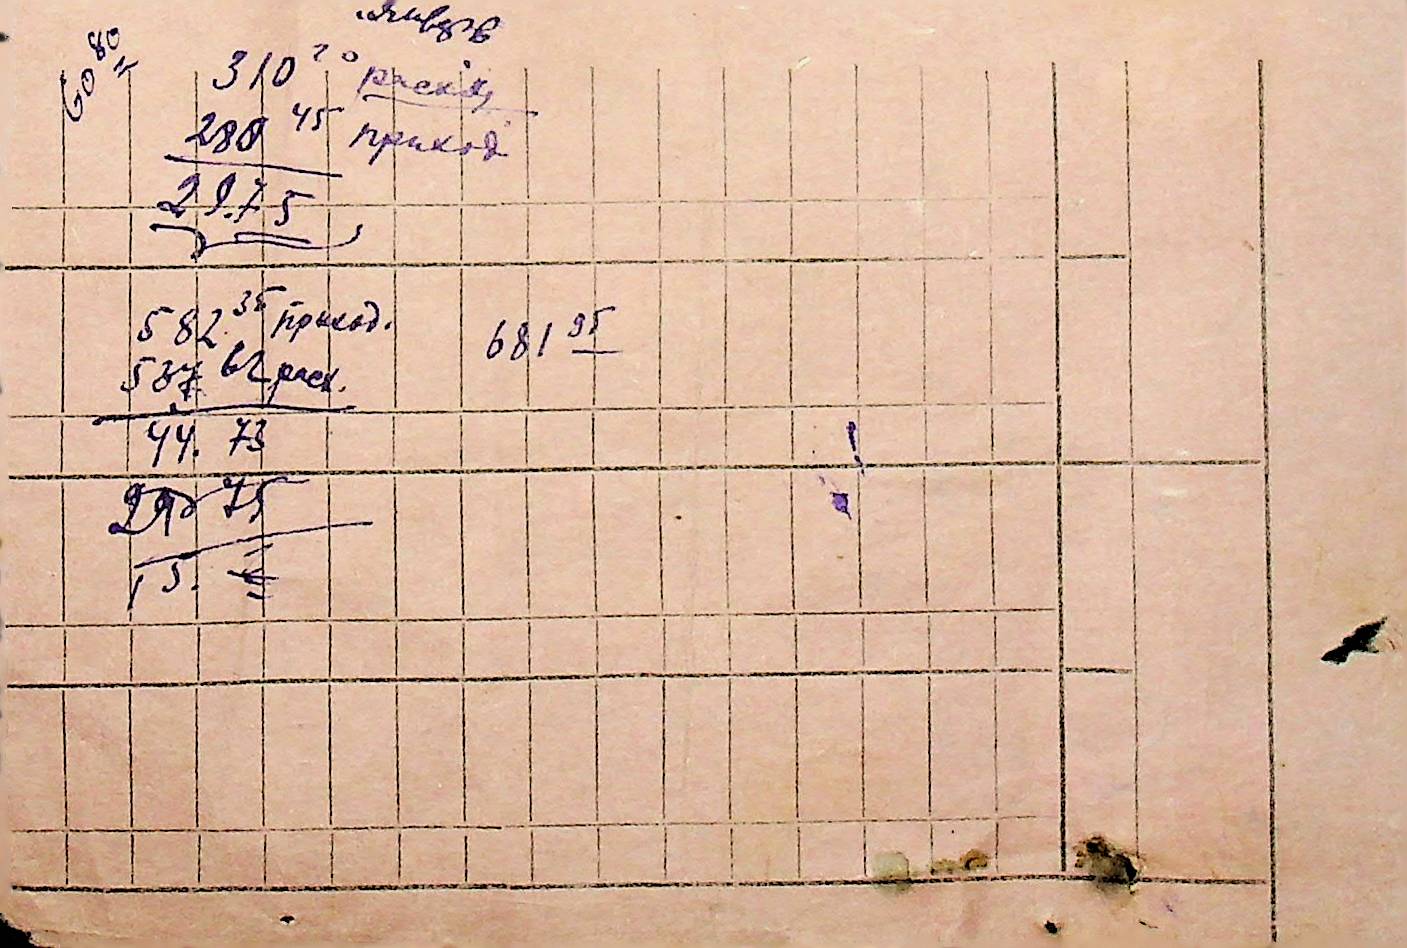 январь
60 80
310 20 расход
280 45 приход
29.75
582 35 приход.
537 62 расх.
681 95
44.73
29 75
15.